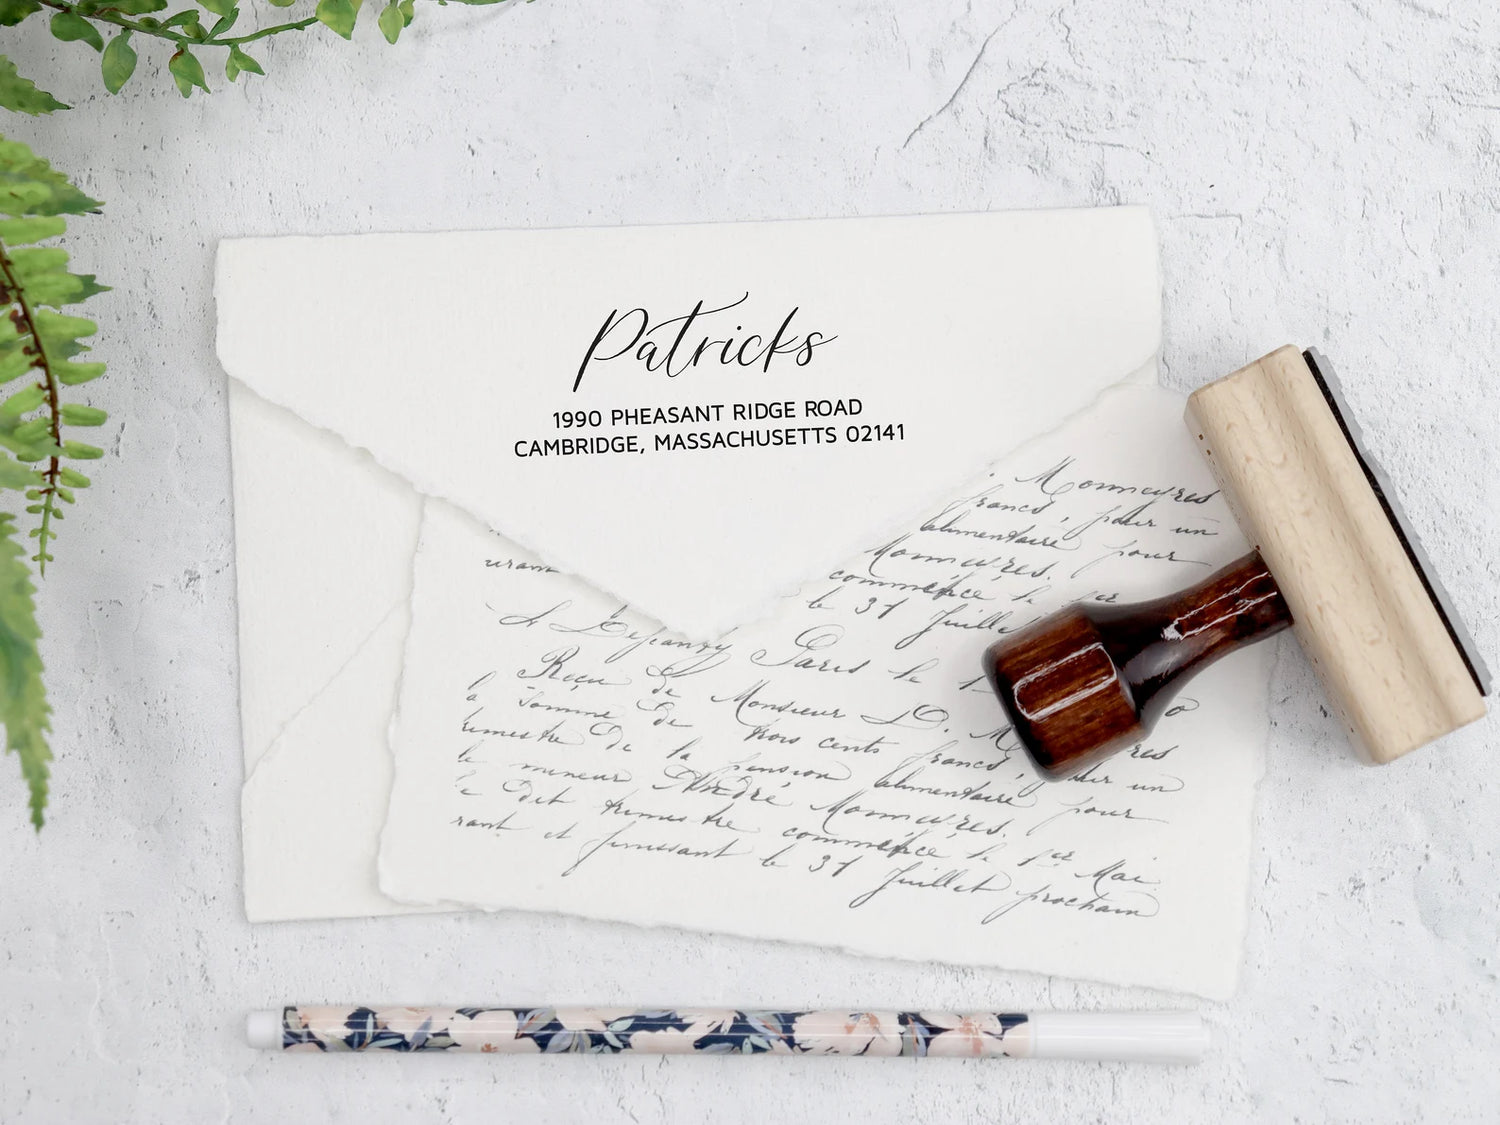 Patricks
1990 PHEASANT RIDGE ROAD
CAMBRIDGE, MASSACHUSETTS 02141
Monmeyres
francs, pour un
alimentaire pour
Monmeyres.
commence le 1er
le 31 Juillet
Paris le
Reçu de Monsieur D. M
la Somme de trois cents francs, pour un
trimestre de la pension alimentaire pour
le mineur André Monmeyres.
Dit trimestre commence le 1er Mai
rant et finissant le 31 Juillet prochain